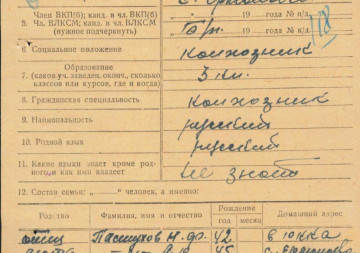 5. Член ВКП(б); канд. в чл. ВКП(б) 19 года № п/д
Чл. ВЛКСМ; канд. в чл. ВЛКСМ б/п. 19 года № п/д
(нужное подчеркнуть) 118
6. Социальное положение колхозник
7. Образование
(каков уч. заведен. окончил, сколько 3 кл.
классов или курсов, где и когда)
8. Гражданская специальность колхозник
9. Национальность русский
10. Родной язык русский
11. Какие языки знает кроме род-
ного и как ими владеет не знает
12. Состав семьи: „ “ человек, а именно:
Родство Фамилия, имя и отчество Рождение Домашний адрес
год месяц
отец Пастухов Н. Ф. 42
45